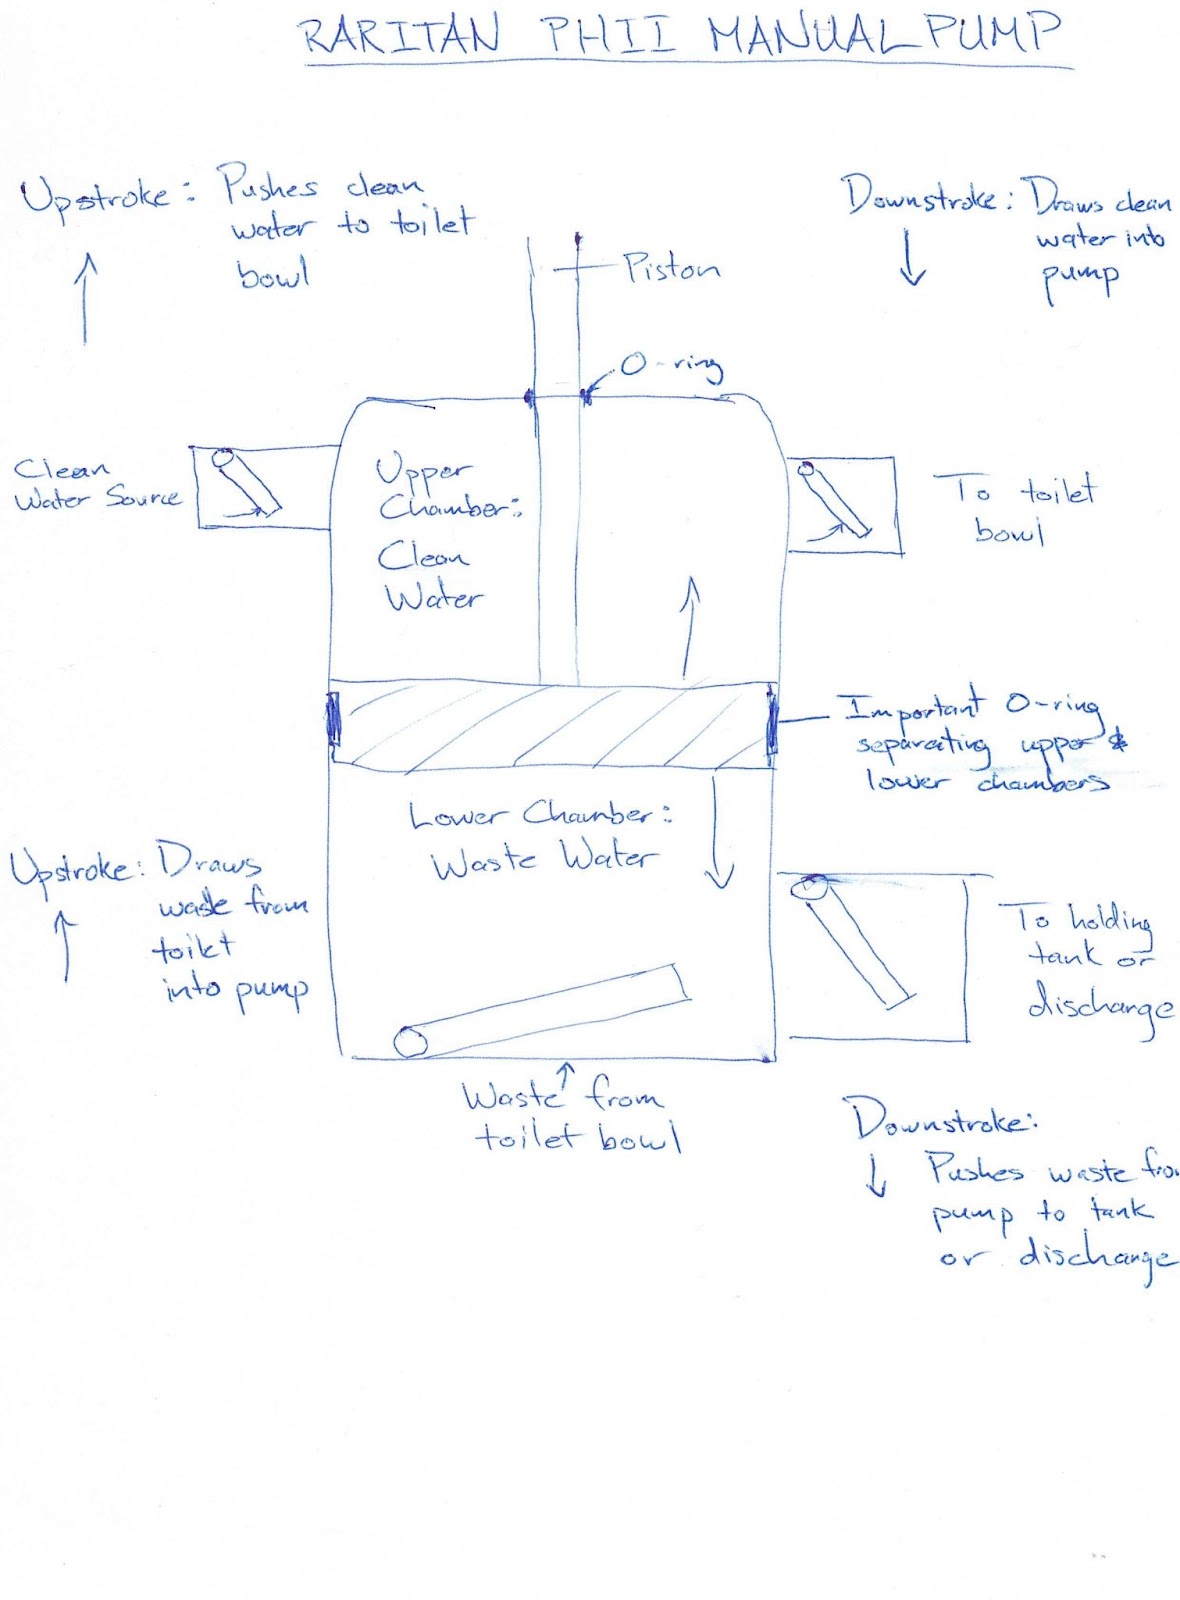 RARITAN PHII MANUAL PUMP
Upstroke: Pushes clean
water to toilet
bowl
Downstroke: Draws clean
water into
pump
Piston
O-ring
Clean
Water Source
Upper
Chamber:
Clean
Water
To toilet
bowl
Important O-ring
separating upper &
lower chambers
Lower Chamber:
Waste Water
Upstroke: Draws
waste from
toilet
into pump
To holding
tank or
discharge
Waste from
toilet bowl
Downstroke:
Pushes waste from
pump to tank
or discharge